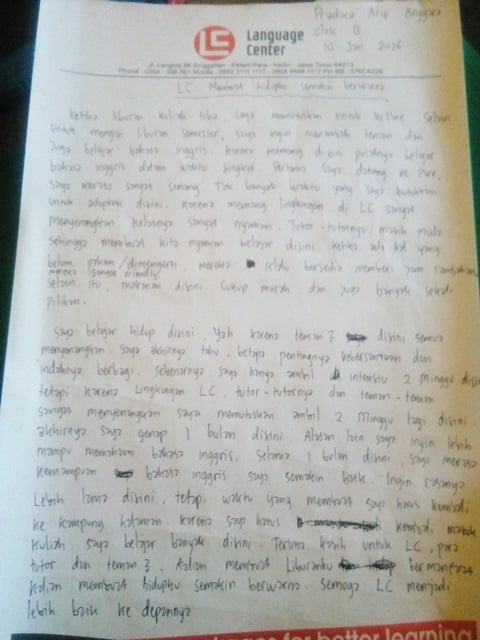 Pradika Arif Anggara
class B
10 Jan 2016
LC
Language
Center
Jl. Langkat 88 Singgahan - Pelem Pare - Kediri - Jawa Timur 64213
LC Membuat hidupku semakin berwarna
Ketika liburan kuliah tiba, saya memutuskan untuk ke Pare. Selain
untuk mengisi liburan semester, saya ingin menambah teman dan
juga belajar bahasa inggris. Karena memang disini pusatnya belajar
bahasa inggris dalam waktu singkat. Pertama saya datang ke Pare,
saya merasa sangat senang. Tak banyak waktu yang saya butuhkan
untuk adaptasi disini. Karena memang lingkungan di LC sangat
menyenangkan kelasnya sangat nyaman. Tutor-tutornya masih muda
sehingga membuat kita nyaman belajar disini. Ketika ada hal yang
belum paham/dimengerti, mereka selalu bersedia memberi jam tambahan
mereka sangat friendly.
Selain itu, makanan disini cukup murah dan juga banyak sekali
pilihan.
Saya belajar hidup disini, Yah karena teman2 disini semua
menyenangkan saya akhirnya tahu, betapa pentingnya kebersamaan dan
indahnya berbagi. Sebenarnya saya hanya ambil intensiv 2 Minggu disini
tetapi karena Lingkungan LC, tutor-tutornya dan teman-teman
sangat menyenangkan saya memutuskan ambil 2 Minggu lagi disini.
akhirnya saya genap 1 bulan disini. Alasan lain saya ingin lebih
mampu memahami bahasa inggris. Selama 1 bulan disini, saya merasa
kemampuan bahasa inggris saya semakin baik. Ingin rasanya
Lebih lama disini, tetapi waktu yang membuat saya harus kembali
ke kampung halaman. Karena saya harus kembali masuk
kuliah. saya belajar banyak disini Terima kasih untuk LC, para
tutor dan teman2. Kalian membuat liburanku bermanfaat
Kalian membuat hidupku semakin berwarna. Semoga LC menjadi
lebih baik ke depannya
for better learning